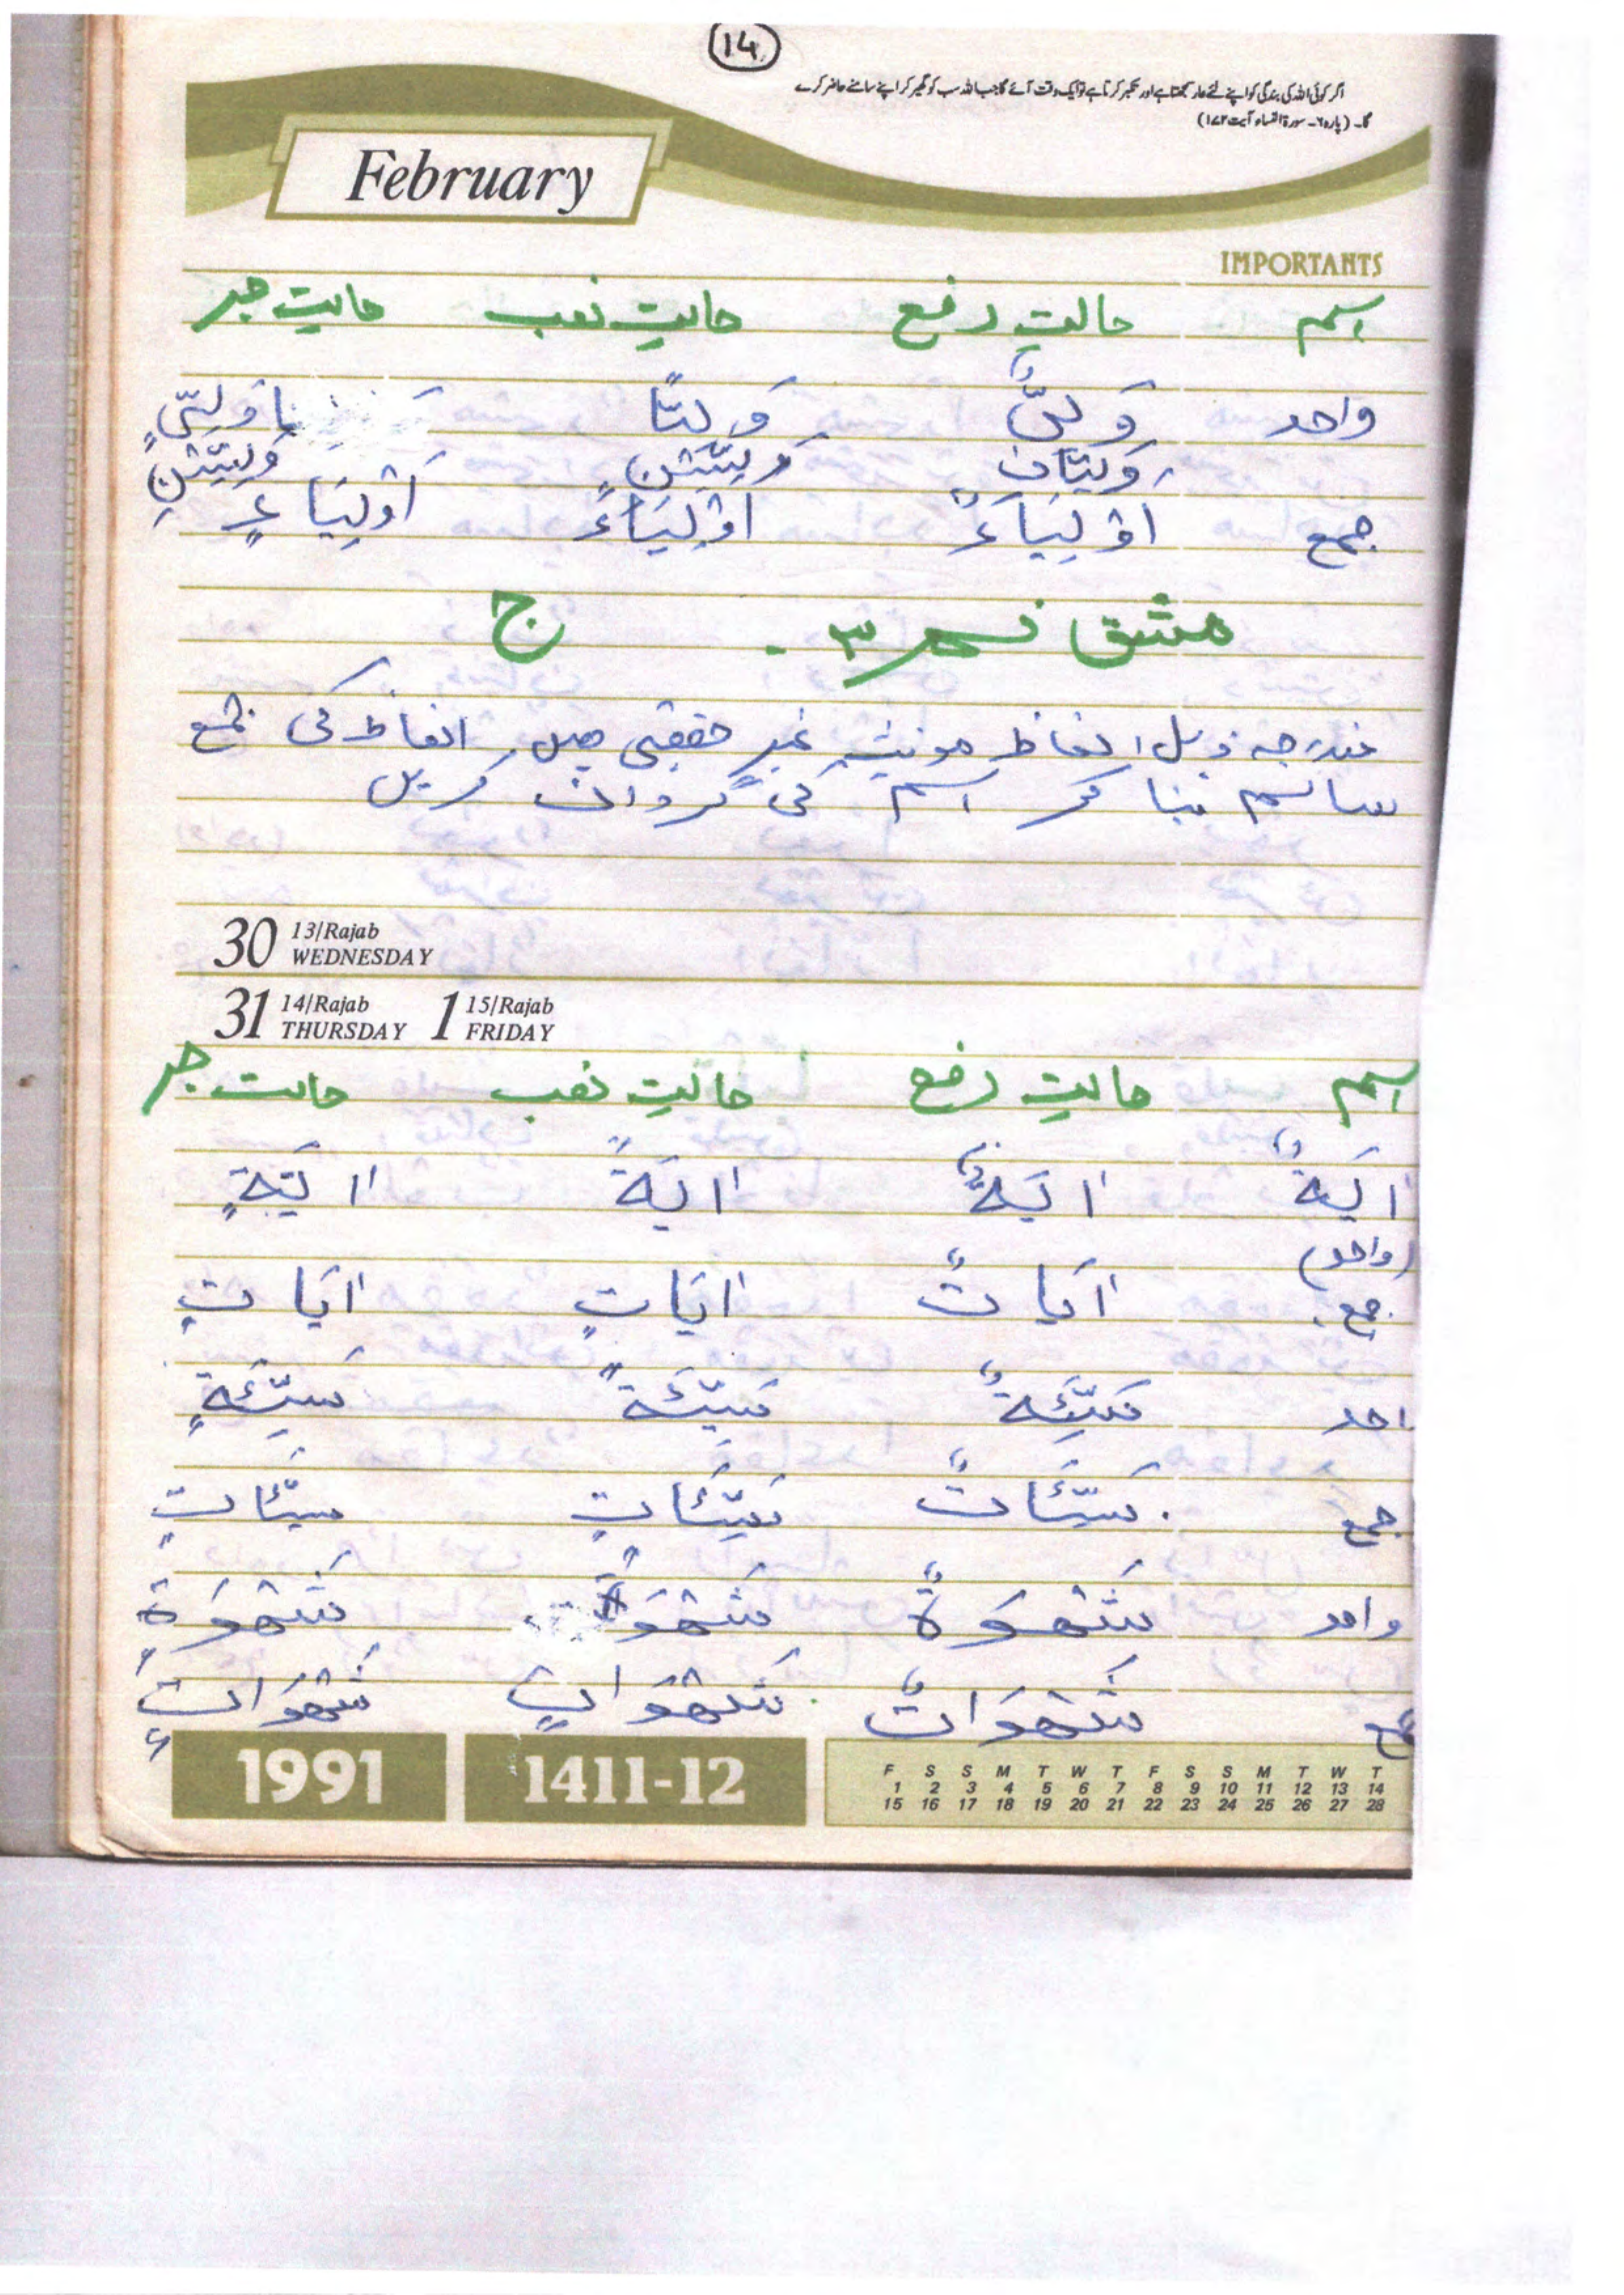 14
اگر کوئی اللہ کی بندگی کو اپنے لئے عار سمجھتا ہے اور تکبر کرتا ہے تو ایک وقت آئے گا جب اللہ سب کو گھیر کر اپنے سامنے حاضر کرے
گا۔ (پارہ ۶۔ سورۃ النساء آیت ۱۷۲)
February
IMPORTANTS
اسم حالتِ رفع حالتِ نصب حالتِ جر
واحد وَلِیٌّ وَلِیًّا وَلِیٍّ
وَلِیَّانِ وَلِیَّیْنِ وَلِیَّیْنِ
جمع اَوْلِیَاءٌ اَوْلِیَاءً اَوْلِیَاءٍ
مشق نمبر ۳ - ج
مندرجہ ذیل الفاظ مونث غیر حقیقی ہیں الفاظ کی جمع
سالم بنا کر اسم کی گردان کریں
30 13/Rajab WEDNESDAY
31 14/Rajab THURSDAY 1 15/Rajab FRIDAY
اسم حالتِ رفع حالتِ نصب حالت جر
اٰیَةٌ اٰیَةٌ اٰیَةً اٰیَةٍ
(واحد)
جمع اٰیَاتٌ اٰیَاتٍ اٰیَاتٍ
واحد سَیِّئَةٌ سَیِّئَةً سَیِّئَةٍ
جمع سَیِّئَاتٌ سَیِّئَاتٍ سَیِّئَاتٍ
واحد شَهْوَةٌ شَهْوَةً شَهْوَةٍ
جمع شَهَوَاتٌ شَهَوَاتٍ شَهَوَاتٍ
1991 1411-12
F S S M T W T F S S M T W T
1 2 3 4 5 6 7 8 9 10 11 12 13 14
15 16 17 18 19 20 21 22 23 24 25 26 27 28